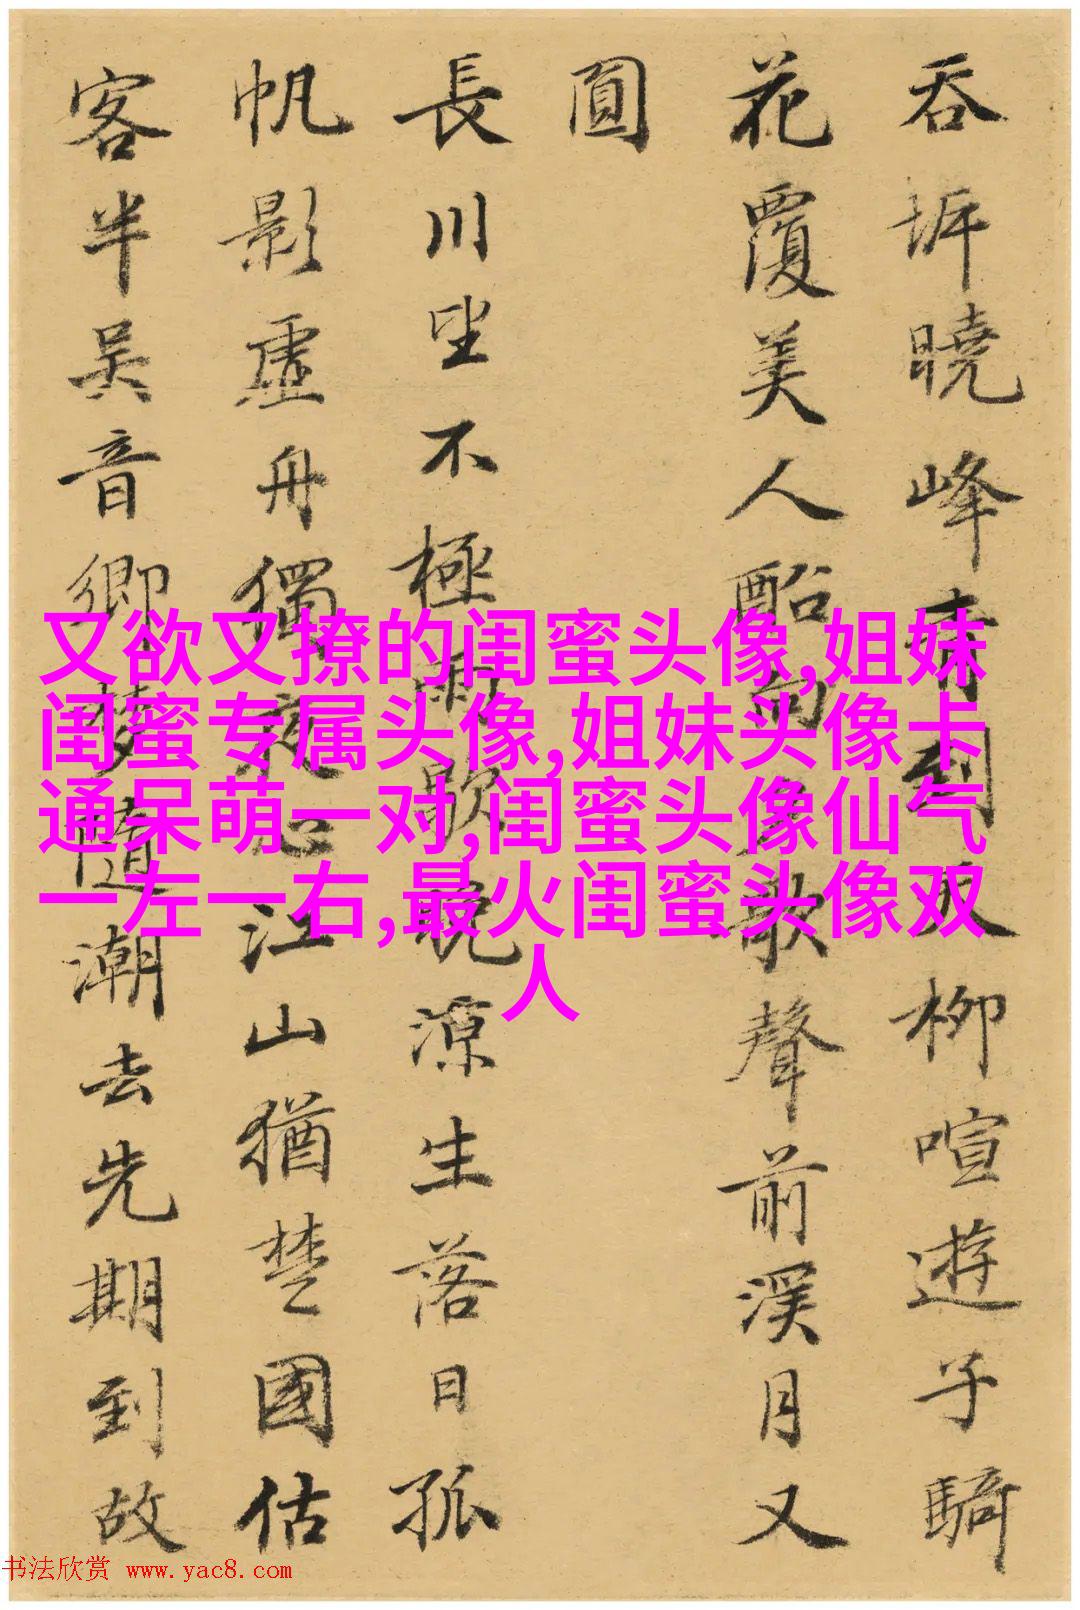 吞坼曉峰青到天柳喧遊子騎
花覆美人船向夕歌聲前溪月又
圓
長川坐不極雨歇晚凉生落日孤
帆影虛舟獨夜心江山猶楚國估
客半吳音鄉夢隨潮去先期到故
又欲又撩的闺蜜头像,姐妹
闺蜜专属头像,姐妹头像卡
通呆萌一对,闺蜜头像仙气
一左一右,最火闺蜜头像双
人
书法欣赏 www.yac8.com